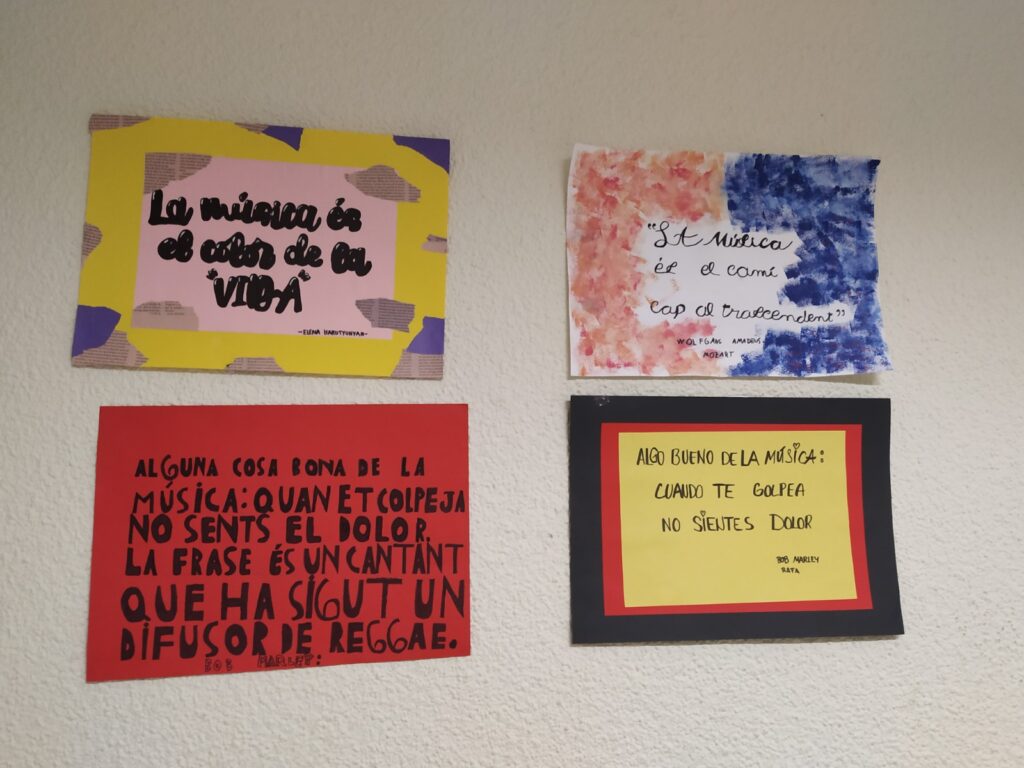 La música és
el color de la
"VIDA"
-ELENA HARUTYUNYAN-
"LA Música
és el camí
cap al trascendent"
WOLFGANG AMADEUS.
MOZART
ALGUNA COSA BONA DE LA
MÚSICA: QUAN ET COLPEJA
NO SENTS EL DOLOR.
LA FRASE ÉS UN CANTANT
QUE HA SIGUT UN
DIFUSOR DE REGGAE.
ALGO BUENO DE LA MÚSICA:
CUANDO TE GOLPEA
NO SIENTES DOLOR
BOB MARLEY
RAFA